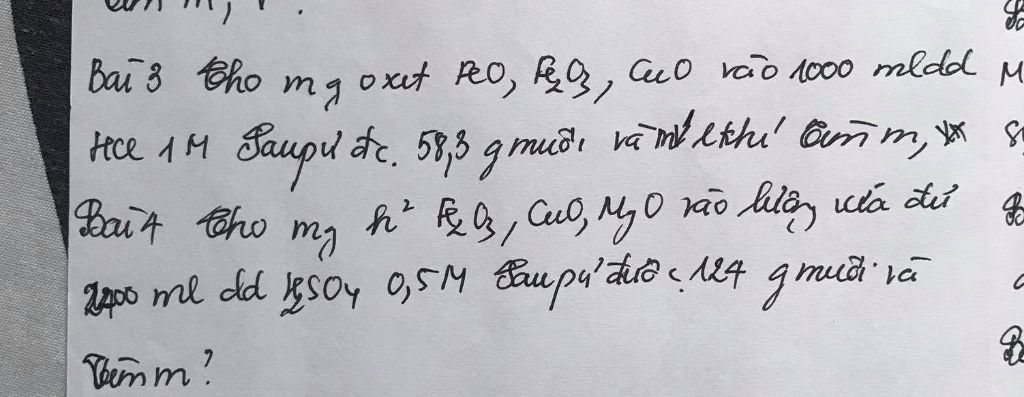 m,
Bài 3 Cho m g oxit FeO, Fe2O3, CuO vào 1000 ml dd
HCl 1M Sau pứ đc. 58,3 g muối và lít khí tìm m,
Bài 4 Cho m g h² Fe2O3, CuO, MgO vào lượng vừa đủ
ml dd H2SO4 0,5M Sau pứ được 124 g muối và
Tìm m?